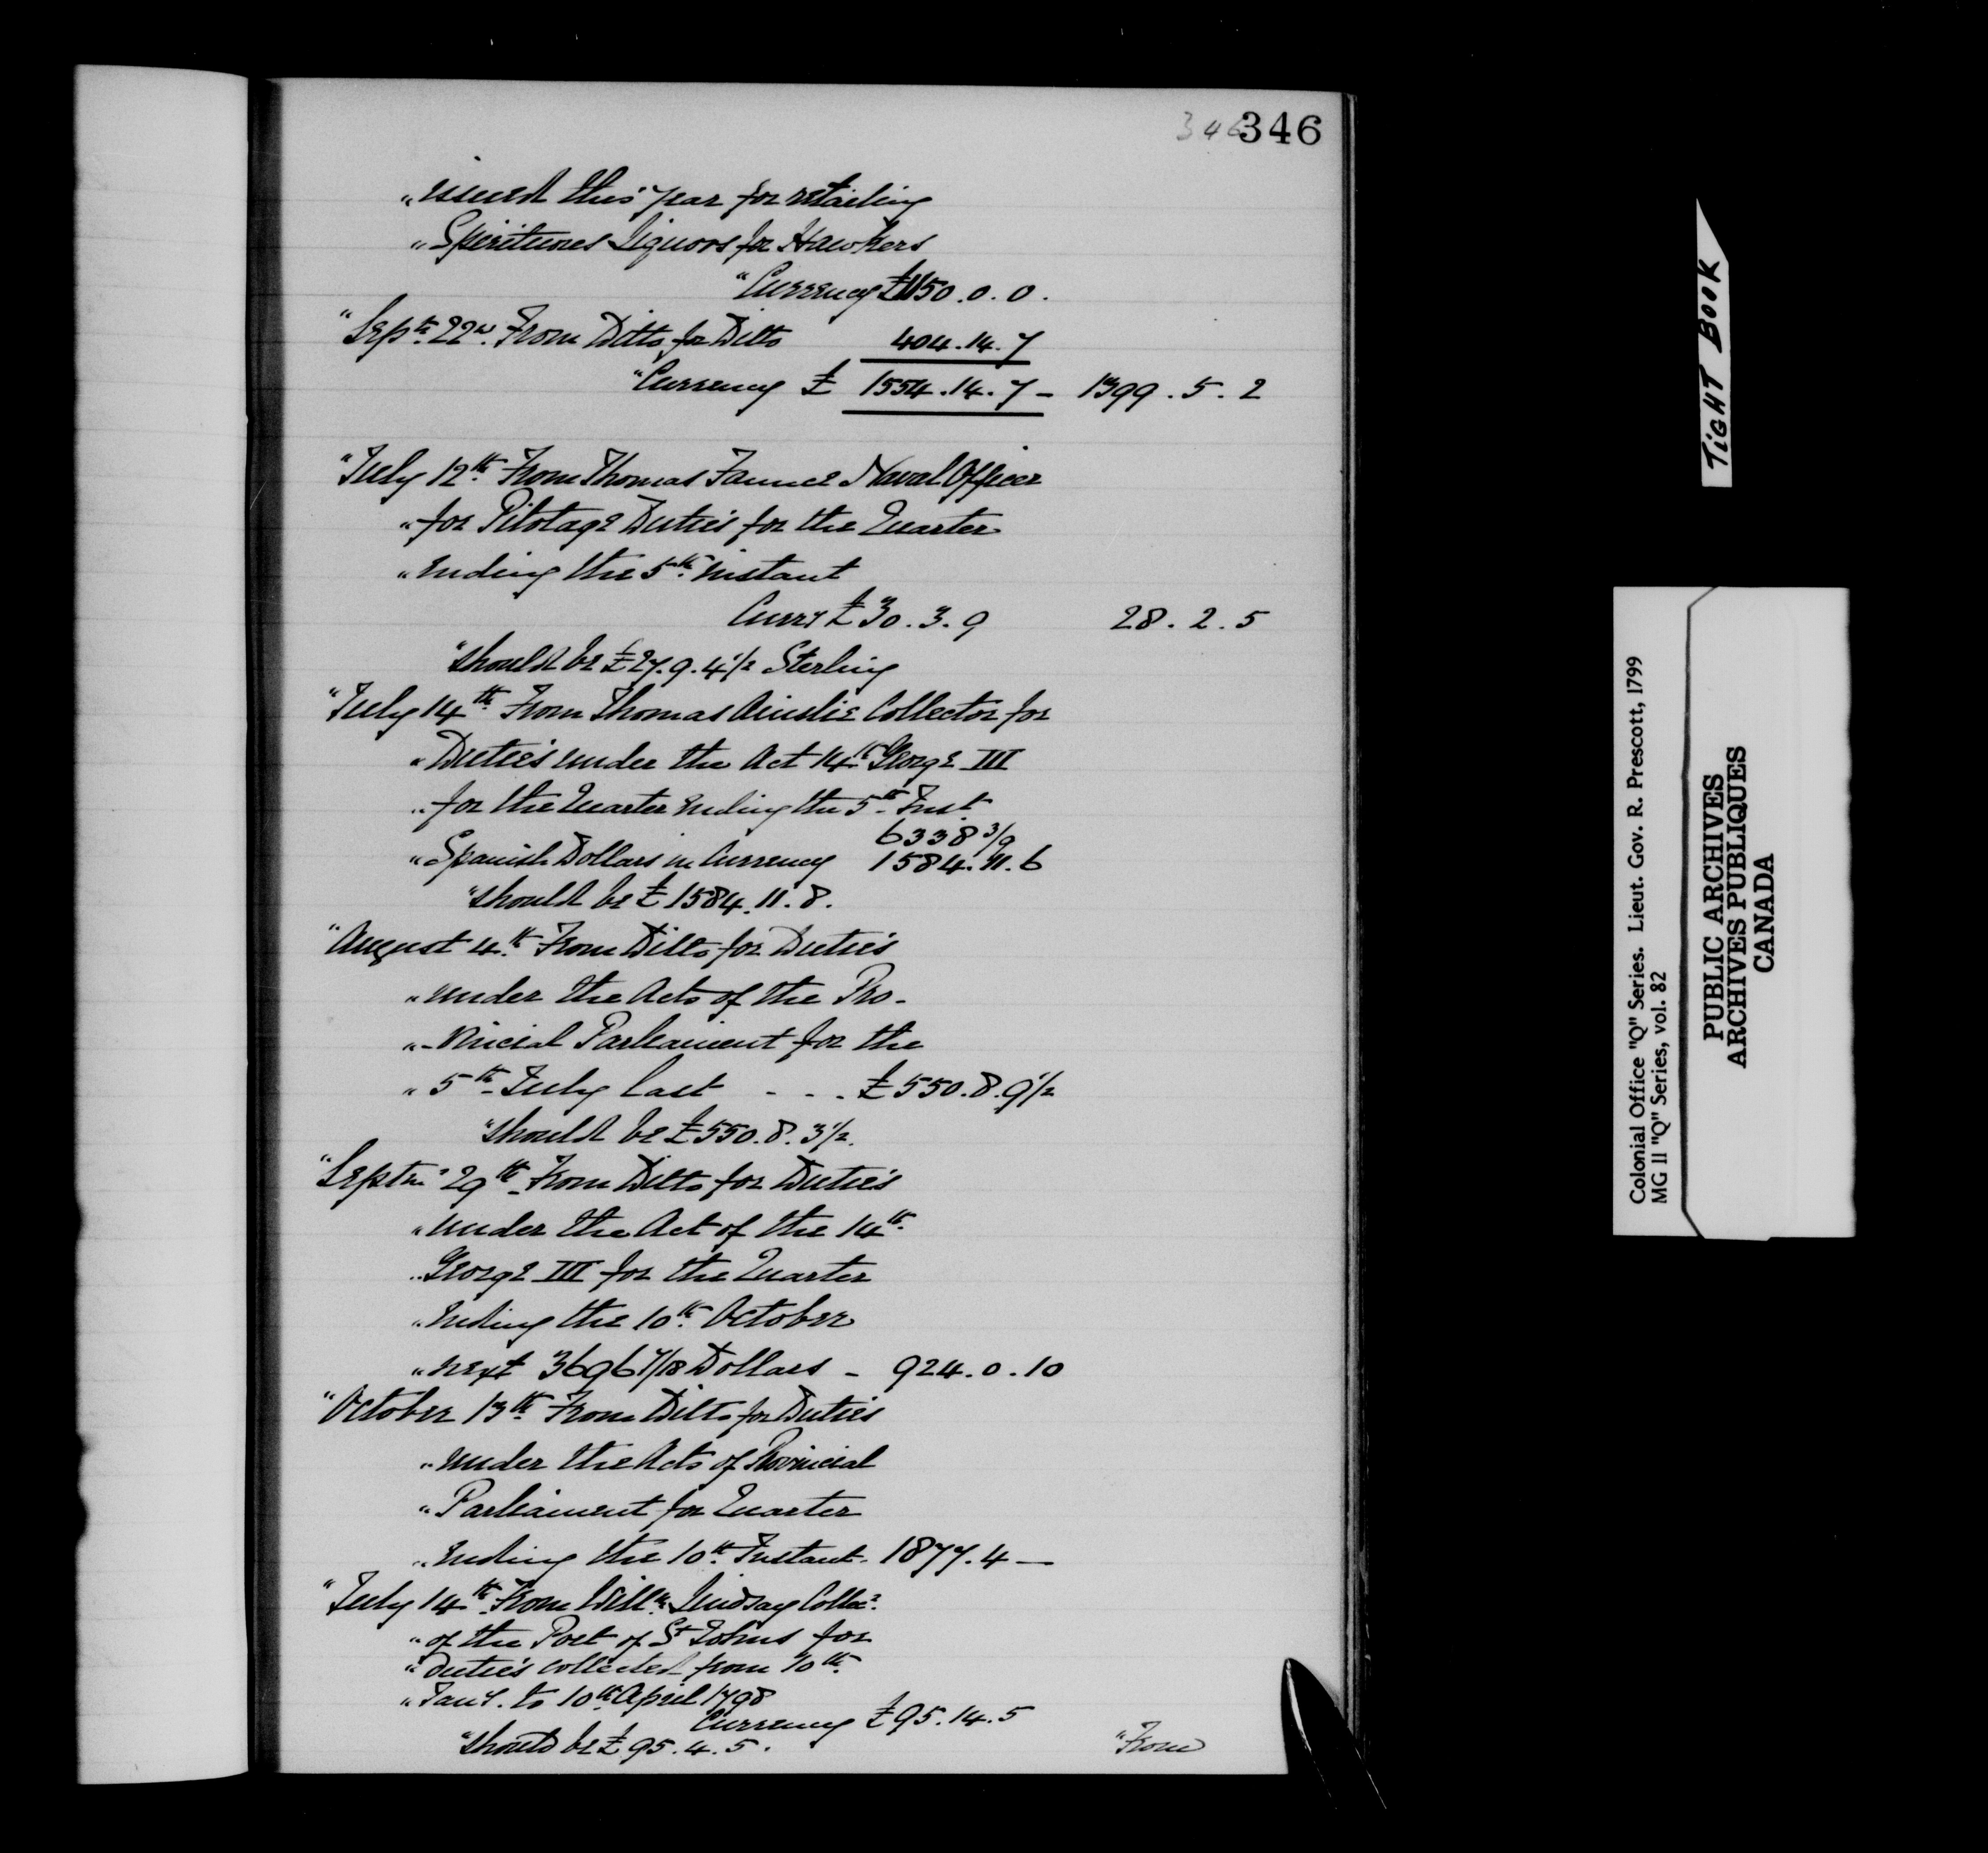 346 346
"issued this year for retailing
"Spirituous Liquors for Hawkers
"Currency £1150.0.0.
"Septr. 22d. From Ditto for Ditto 404.14.7
"Currency £ 1554.14.7 - 1399.5.2
"July 12th. From Thomas Faunce Naval Officer
"for Pilotage Duties for the Quarter
"ending the 5th. instant
Curry £30.3.9 28.2.5
"should be £27.9.4 1/2 Sterling
"July 14th. From Thomas Ainslie Collector for
"Duties under the Act 14th George III
"for the Quarter ending the 5th. Inst.
6338 3/9
"Spanish Dollars in Currency 1584.11.6
"should be £1584.11.8.
"August 4th. From Ditto for Duties
"under the Acts of the Pro-
"-vincial Parliament for the
"5th. July last - - - £550.8.9 1/2
"should be £550.8.3 1/2.
"Septr. 29th. From Ditto for Duties
"under the Act of the 14th.
"George III for the Quarter
"ending the 10th. October
"next 3696 7/18 Dollars - 924.0.10
"October 13th. From Ditto for Duties
"under the Acts of Provincial
"Parliament for Quarter
"ending the 10th. Instant - 1877.4 —
"July 14th. From Willm. Lindsay Collecr.
"of the Port of St Johns for
"Duties collected from 10th.
"Jany. to 10th. April 1798
Currency £95.14.5
"should be £95.4.5.
"From
TiGHT BOOK
Colonial Office "Q" Series. Lieut. Gov. R. Prescott, 1799
MG 11 "Q" Series, vol. 82
PUBLIC ARCHIVES
ARCHIVES PUBLIQUES
CANADA